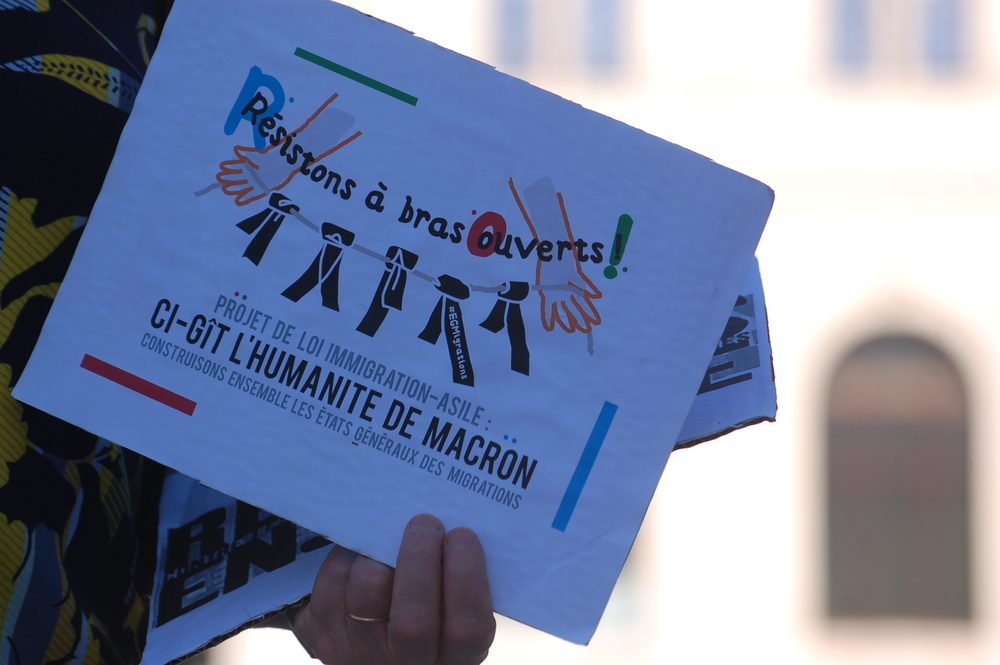 Résistons à bras ouverts !
#EGMigrations
PROJET DE LOI IMMIGRATION-ASILE :
CI-GÎT L'HUMANITE DE MACRÖN
CONSTRUISONS ENSEMBLE LES ÉTATS GÉNÉRAUX DES MIGRATIONS